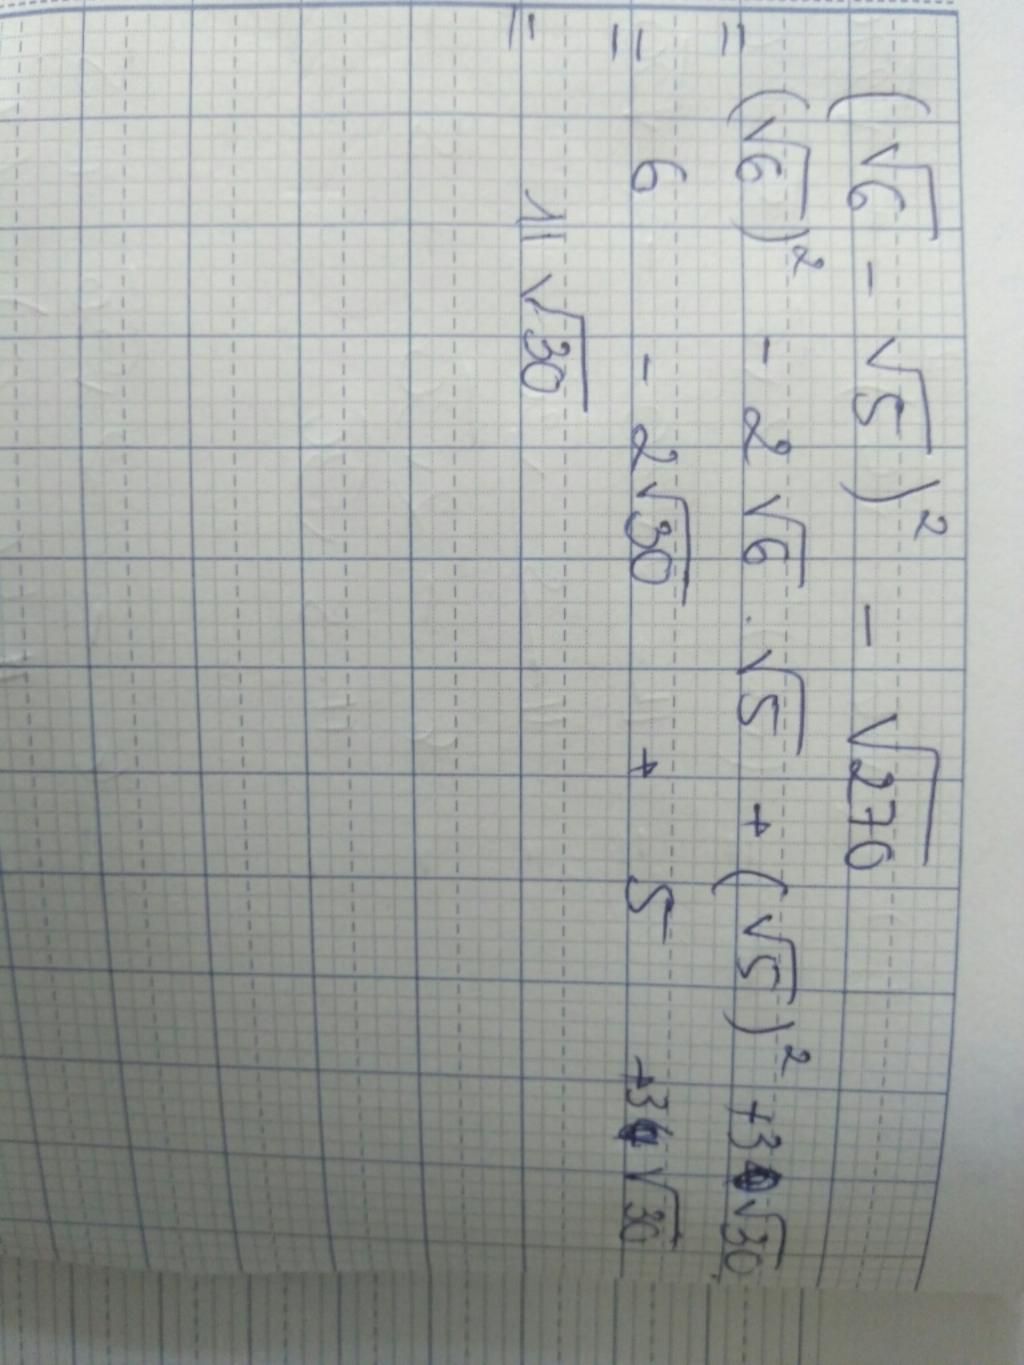 (√6 - √5)² - √270
= (√6)² - 2√6 . √5 + (√5)² +3√30
= 6 - 2√30 + 5 +3√30
= 11√30